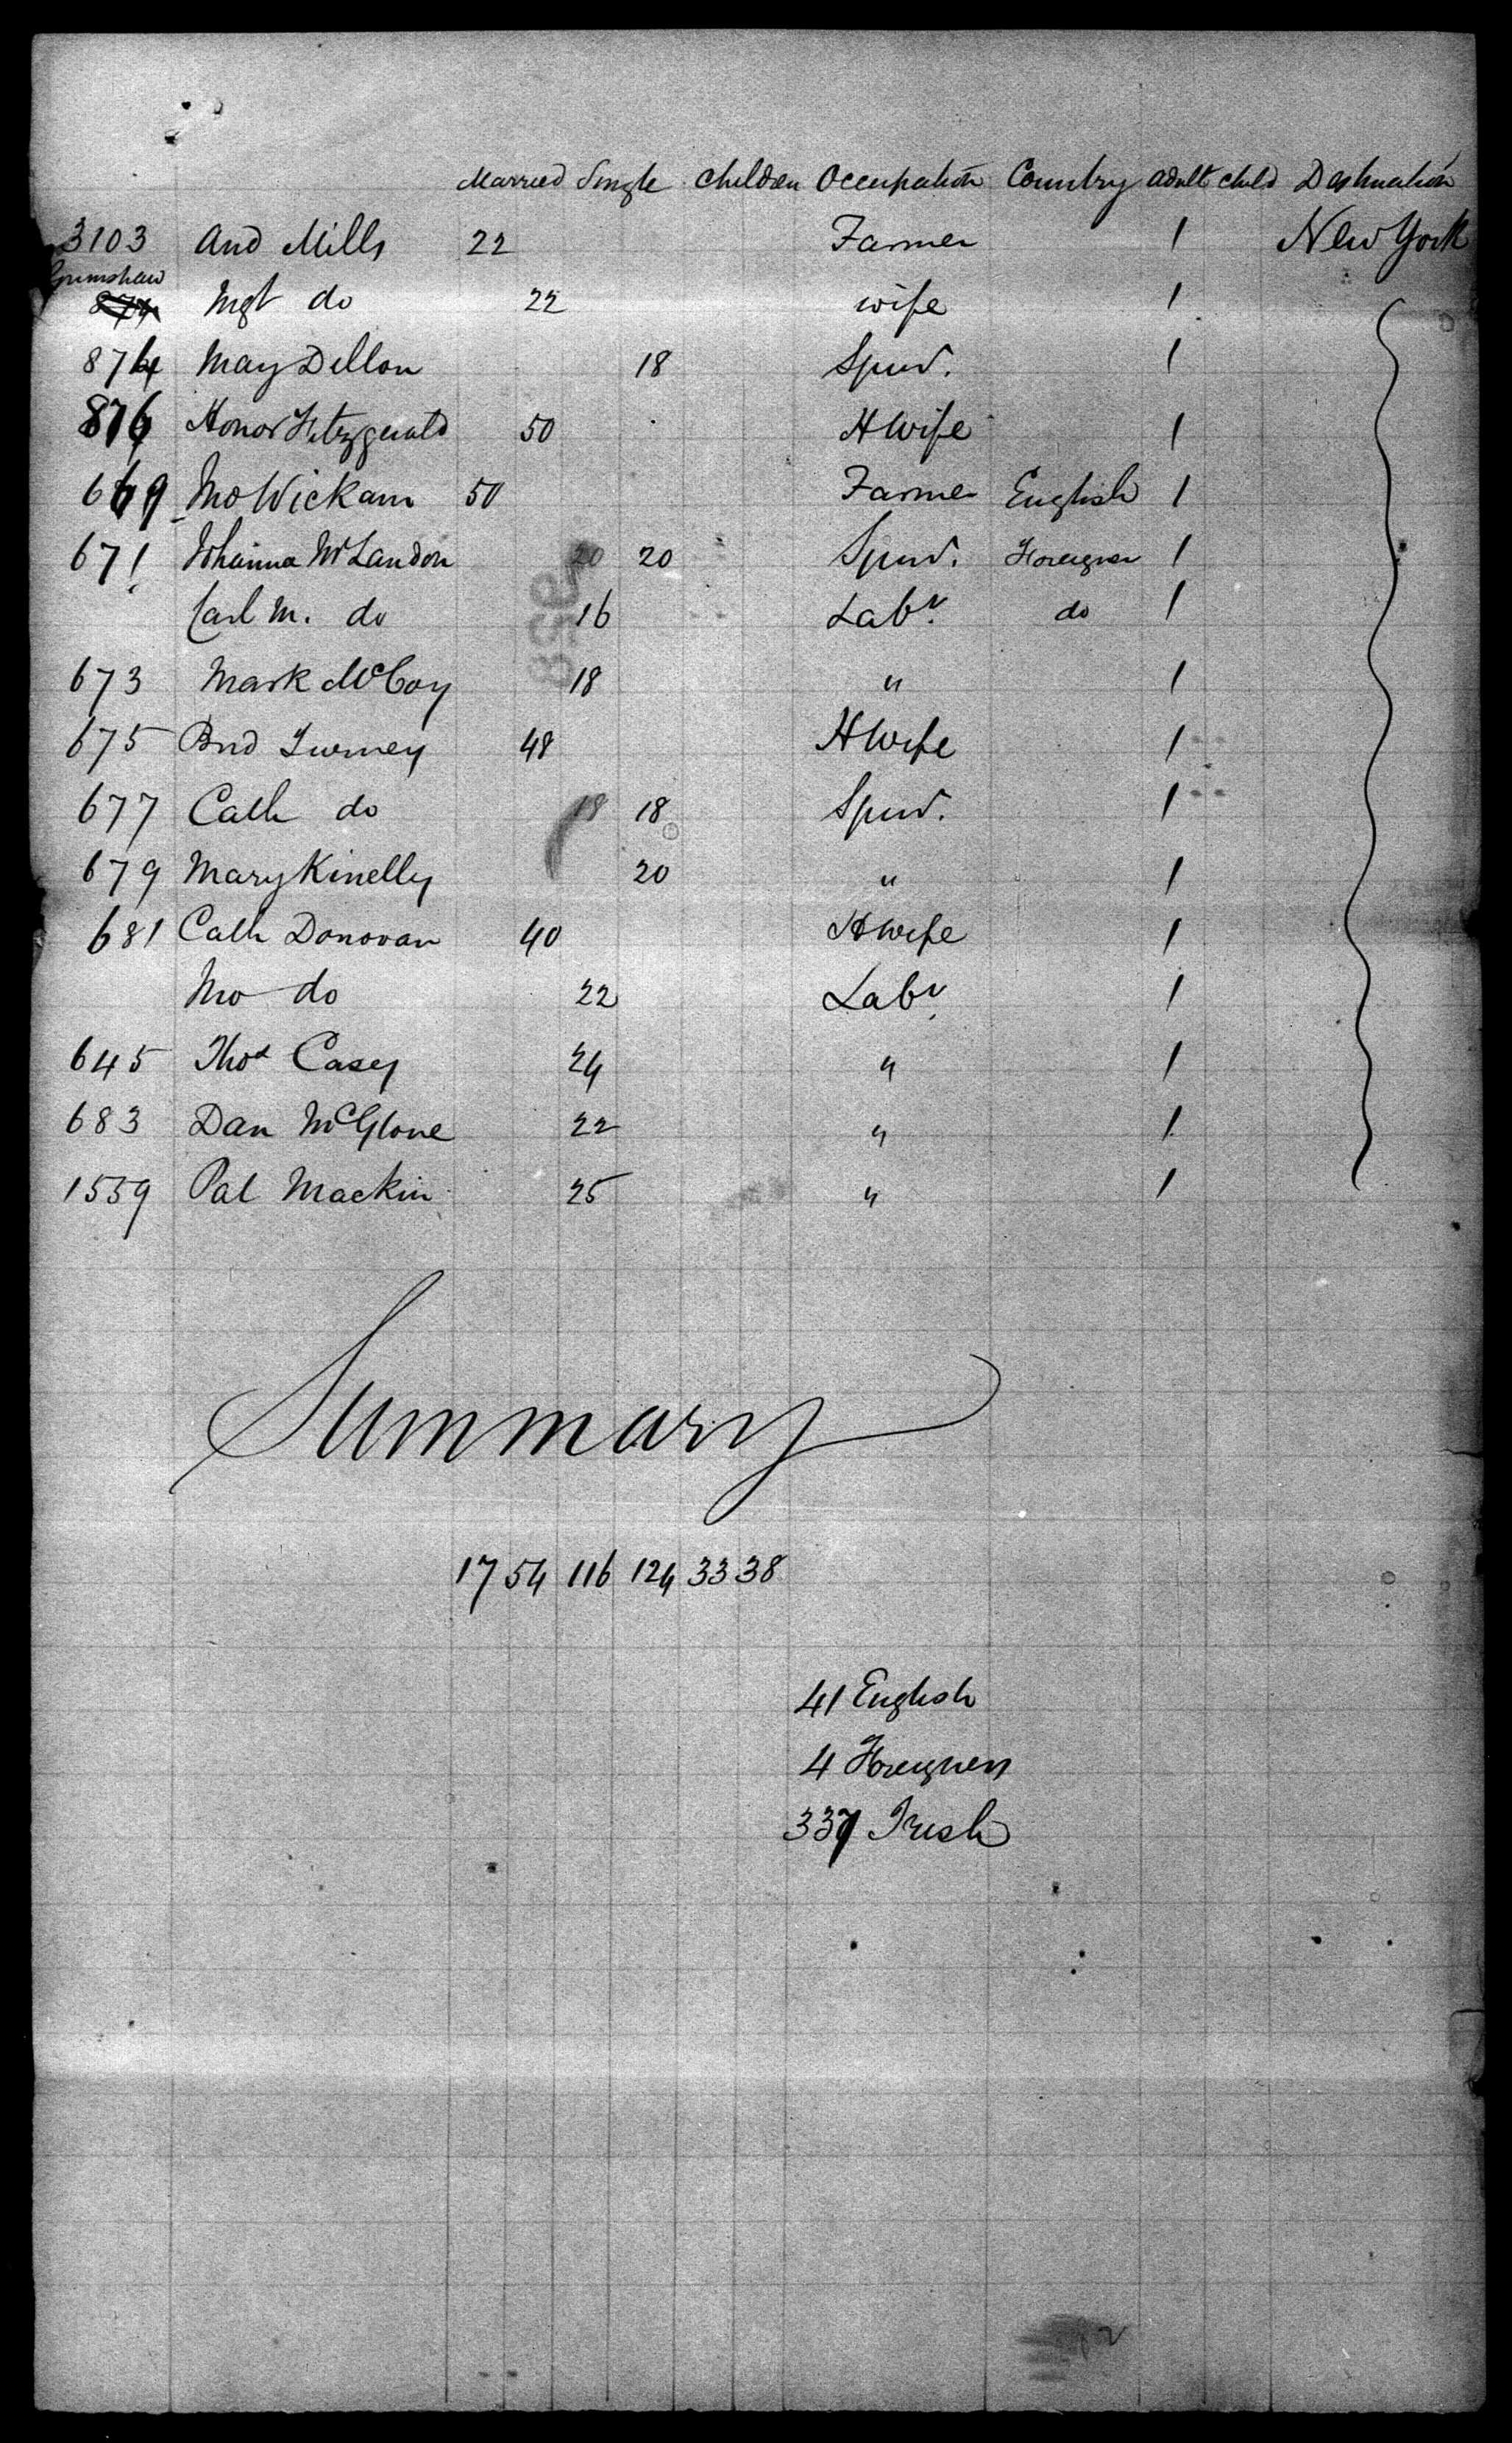 Married Single Children Occupation Country adult child Destination
3103 And Mills 22 Farmer 1 New York
Grimshaw
874 Mgt do 22 wife 1
874 May Dillon 18 Spinr. 1
876 Honor Fitzgerald 50 HWife 1
669 Jno Wickam 50 Farmer English 1
671 Johanna McLandon 20 20 Spinr. Foreigner 1
Carl M. do 16 Labr. do 1
673 Mark McCoy 18 " 1
675 Brid Turney 48 HWife 1
677 Cath do 18 18 Spinr. 1
679 Mary Kinelly 20 " 1
681 Cath Donovan 40 HWife 1
Jno do 22 Labr. 1
645 Thos Casey 24 " 1
683 Dan McGlone 22 " 1
1559 Pat Mackin 25 " 1
Summary
17 54 116 124 33 38
41 English
4 Foreigners
337 Irish